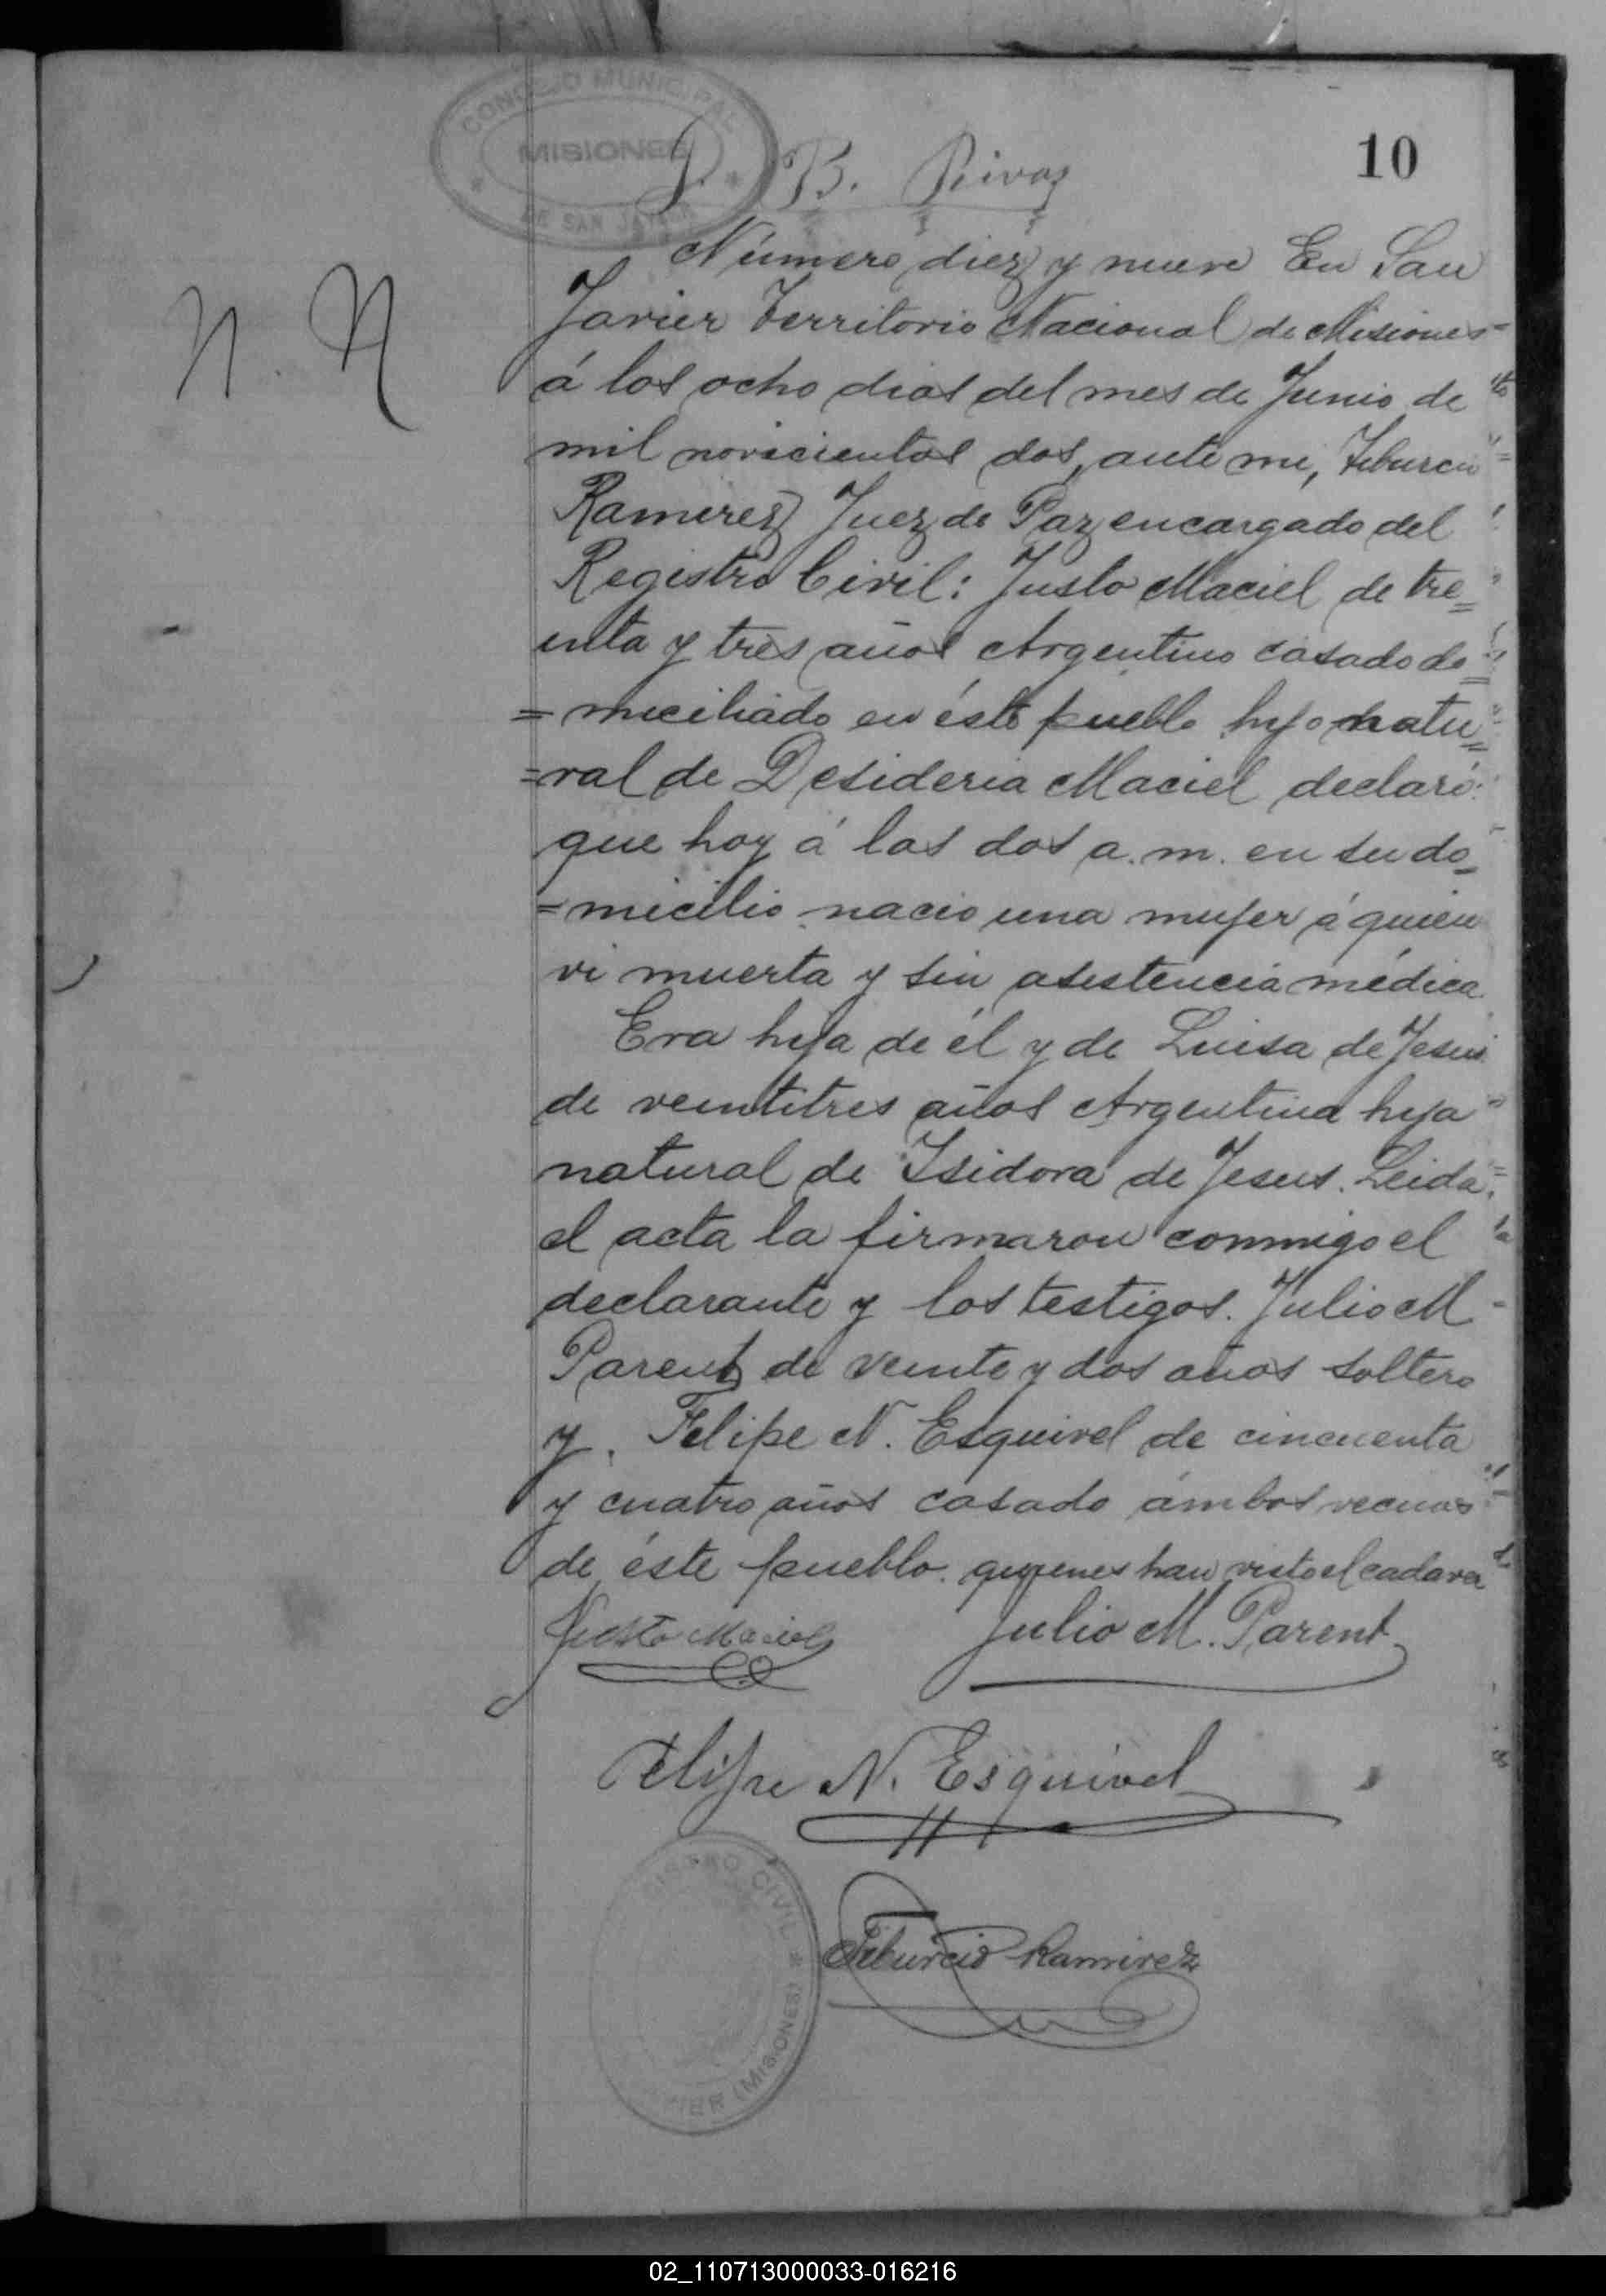 CONCEJO MUNICIPAL
MISIONES
DE SAN JAVIER
J. B. Rivas
10
N. N
Número diez y nueve En San
Javier Territorio Nacional de Misiones
á los ocho dias del mes de Junio de
mil novicientos dos, ante mi, Tiburcio
Ramirez Juez de Paz encargado del
Registro Civil: Justo Maciel de tre=
inta y tres años Argentino casado do=
=miciliado en éste pueblo hijo natu=
=ral de Desideria Maciel declaró:
que hoy á las dos a.m. en su do=
=micilio nacio una mujer á quien
vi muerta y sin asistencia médica
Era hija de él y de Luisa de Jesus
de veintitres años Argentina hija
natural de Isidora de Jesus. Leida
el acta la firmaron conmigo el
declarante y los testigos. Julio M
Parent de veinte y dos años soltero
y Felipe N. Esquivel de cincuenta
y cuatro años casado ámbos vecinos
de éste pueblo. quienes han visto el cadaver
Justo Maciel
Julio M. Parent
Felipe N. Esquivel
CIVIL
(MISIONES)
Tiburcio Ramirez
02_110713000033-016216